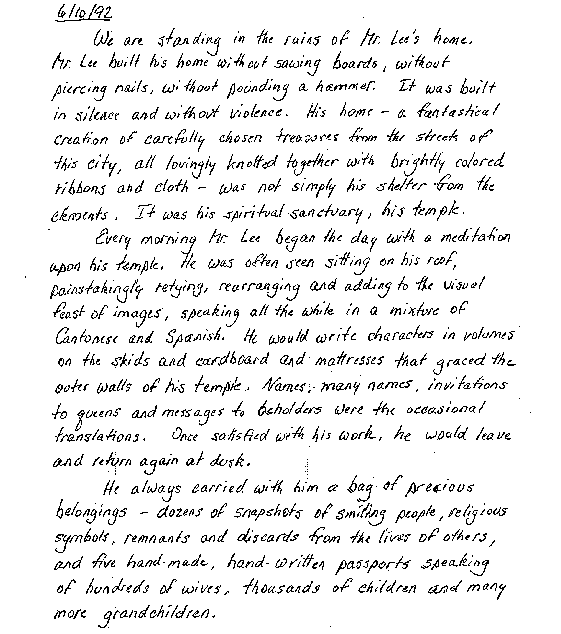 6/10/92
We are standing in the ruins of Mr. Lee's home.
Mr. Lee built his home without sawing boards, without
piercing nails, without pounding a hammer. It was built
in silence and without violence. His home - a fantastical
creation of carefully chosen treasures from the streets of
this city, all lovingly knotted together with brightly colored
ribbons and cloth - was not simply his shelter from the
elements. It was his spiritual sanctuary, his temple.
Every morning Mr. Lee began the day with a meditation
upon his temple. He was often seen sitting on his roof,
painstakingly retying, rearranging and adding to the visual
feast of images, speaking all the while in a mixture of
Cantonese and Spanish. He would write characters in volumes
on the skids and cardboard and mattresses that graced the
outer walls of his temple. Names, many names, invitations
to queens and messages to beholders were the occasional
translations. Once satisfied with his work, he would leave
and return again at dusk.
He always carried with him a bag of precious
belongings - dozens of snapshots of smiling people, religious
symbols, remnants and discards from the lives of others,
and five hand-made, hand-written passports speaking
of hundreds of wives, thousands of children and many
more grandchildren.